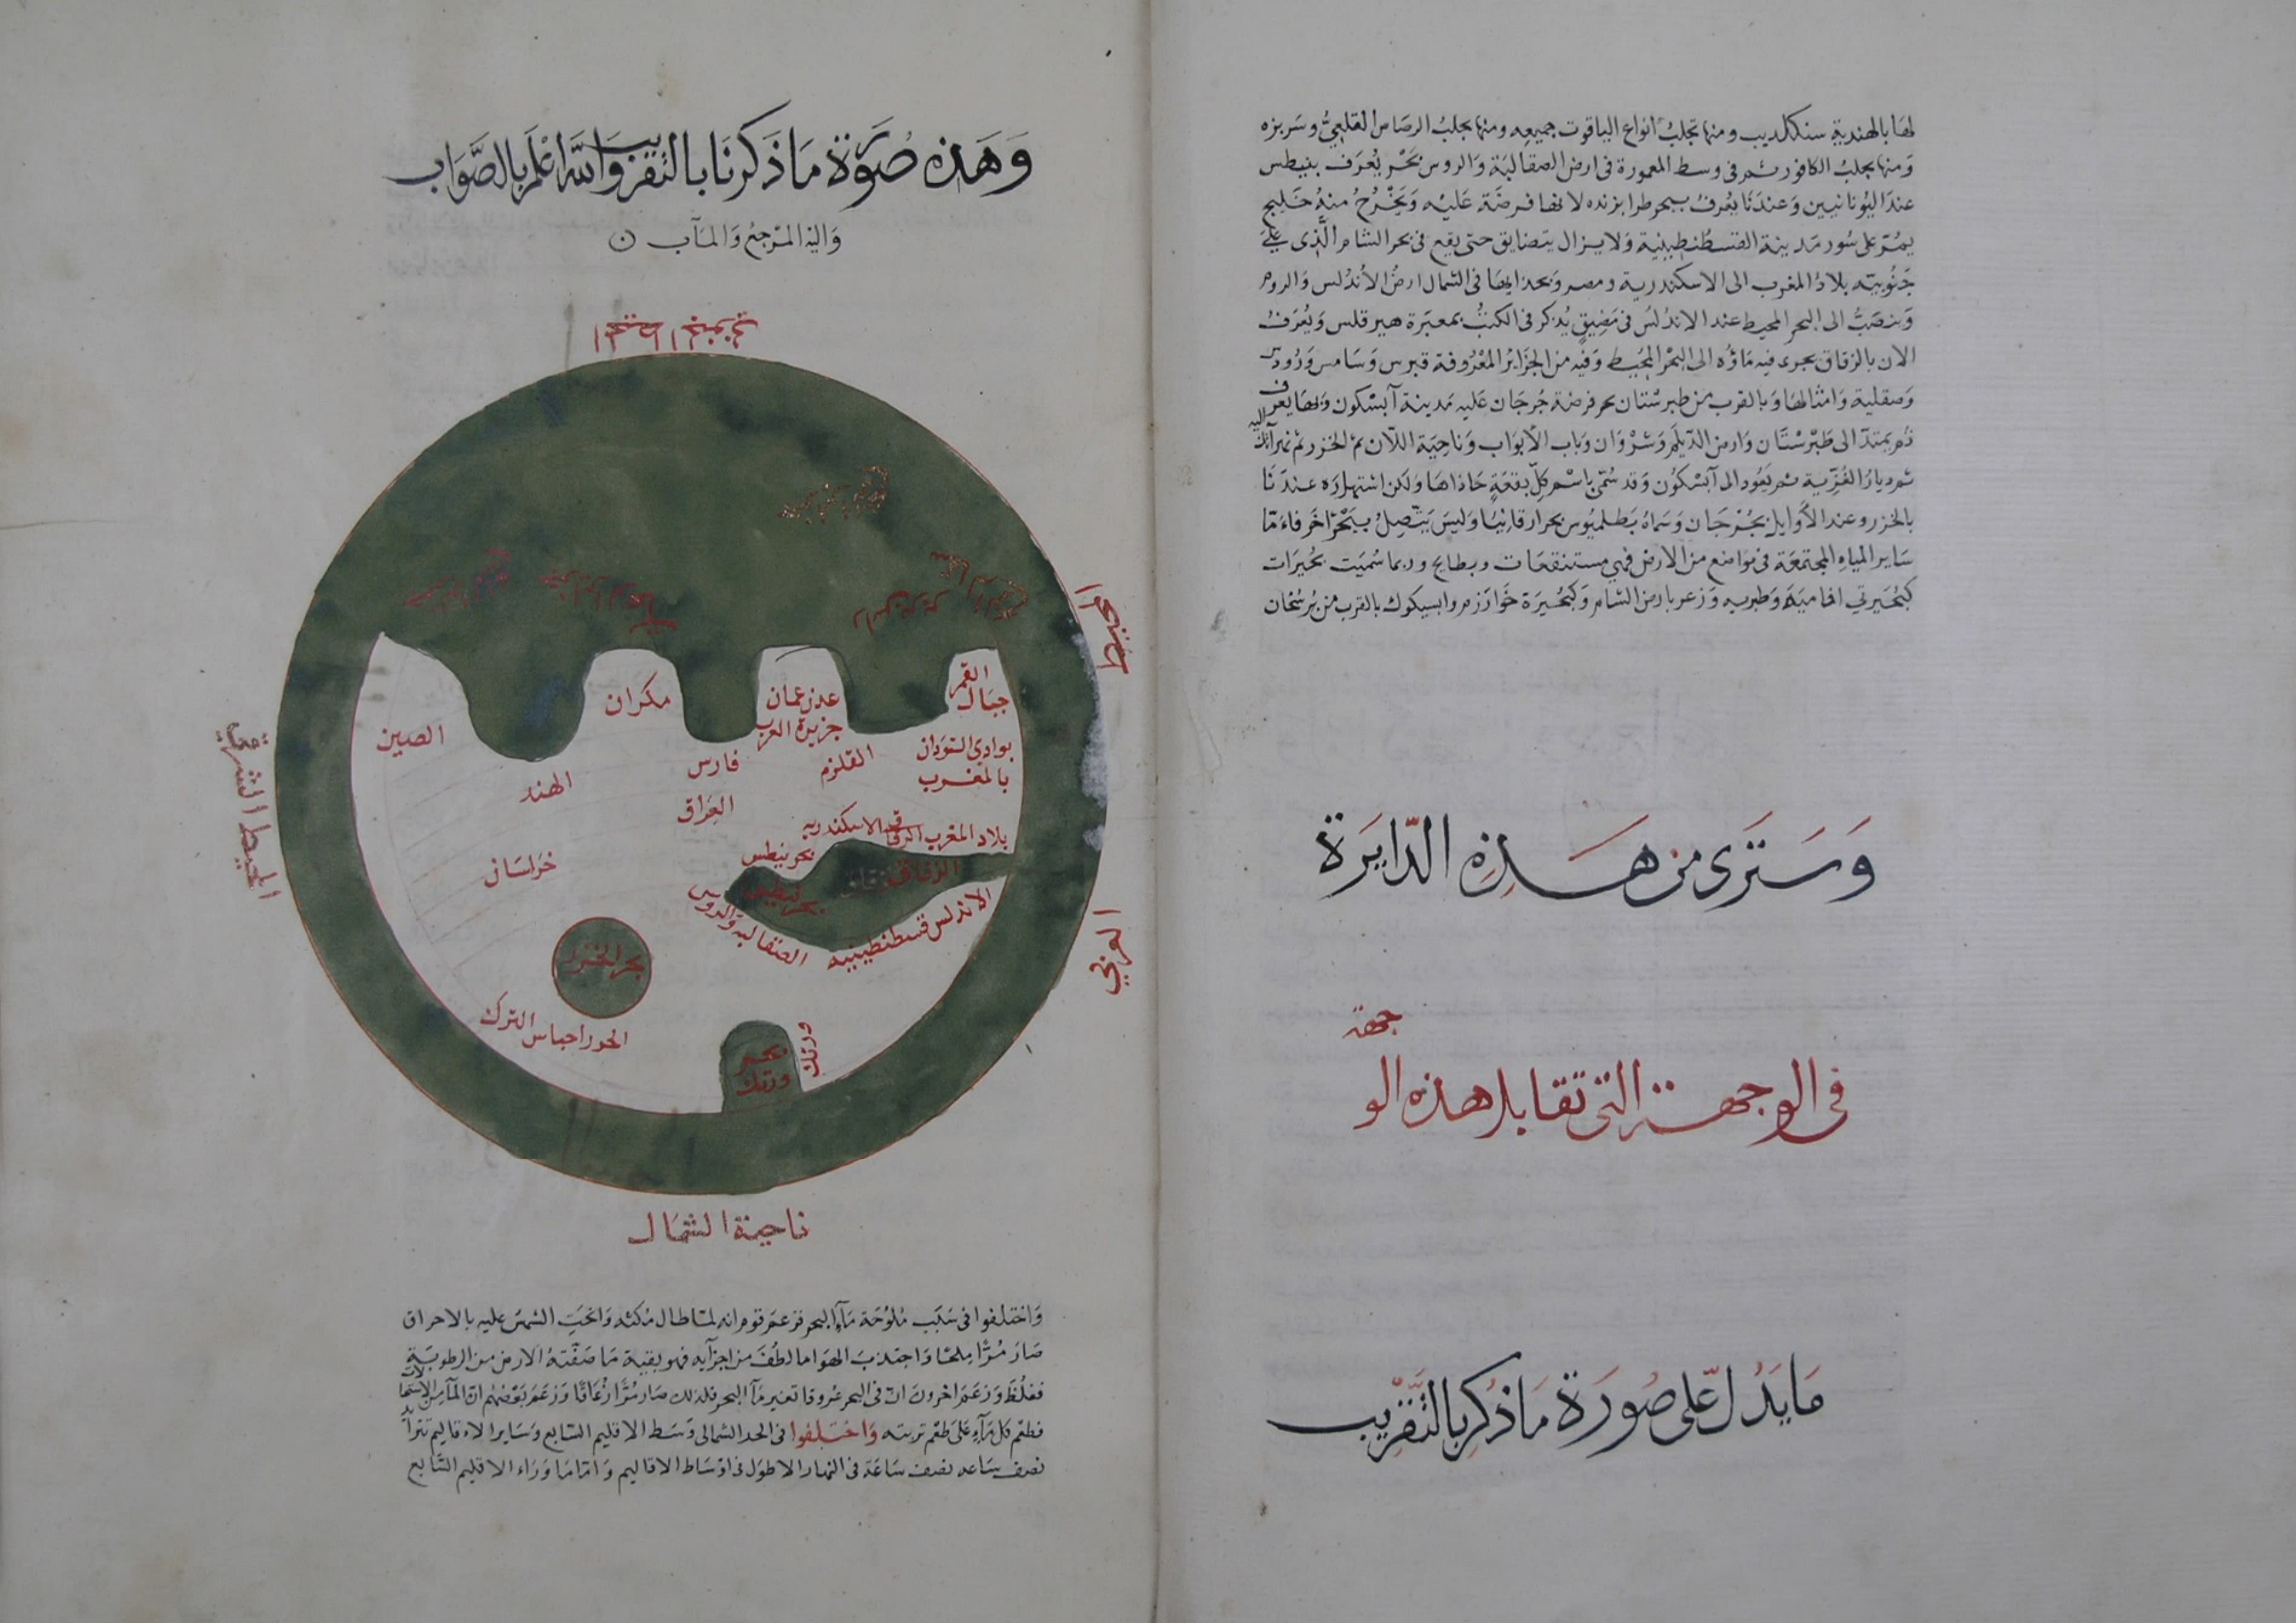 لها بالهندية سنكلديب ومنها تجلب انواع الياقوت جميعه ومنها يجلب الرصاص القلعيّ وسربزه
ومنها يجلب الكافور ثم في وسط المعمورة في ارض الصقالبة والروس بحر يُعرف بنيطس
عند اليونانيين وعندنا يعرف ببحر طرابزنده لانها فرضة عليه ويخرج منه خليج
يمرّ على سور مدينة القسطنطينية ولا يزال يتضايق حتى يقع في بحر الشام الّذي على
جنوبيّه بلاد المغرب الى الاسكندرية ومصر وبحذايها في الشمال ارض الأندلس والروم
وينصبّ الى البحر المحيط عند الاندلس في مضيق يذكر في الكتب بمعبرة هيرقلس ويعرف
الان بالزقاق يجرى فيه ماؤه الى البحر المحيط وفيه من الجزاير المعروفة قبرس وسامس ورودس
وصقلية وامثالها وبالقرب من طبرستان بحر فرضة جرجان عليه مدينة آبسكون وبها يعرف
ثم يمتدّ الى طبرستان وارض الدّيلم وشروان وباب الأبواب وناحية اللّان ثم الخزر ثم نهر آتل اليه
ثم ديار الغزّية ثم يعود الى آبسكون وقد سمّي باسم كلّ بقعة حاذاها ولكن اشتهاره عندنا
بالخزر وعند الأوايل بجرجان وسماه بطلميوس بحر ارقانيا وليس يتّصل ببحر اخر فاءمّا
ساير المياه المجتمعة في مواضع من الارض فهي مستنقعات وبطايح وربما سميت بحيرات
كبحيرتي افامية وطبريه وزغر بارض الشام وكبحيرة خوارزم وابسيكوك بالقرب من برسخان
وسترى من هذه الدّايرة
جهة
في الوجهة التي تقابل هذه الو
ما يدلّ على صورة ما ذكر بالتّقريب
وهذه صورة ما ذكرنا بالتقريب والله اعلم بالصّواب
واليه المرجع والمآب
المحيط الجنوبي
المحيط
الغربي
المحيط الشرقي
جبال القمر
عدن عمان
جزيرة العرب
مكران
الصين
بوادي السّودان
بالمغرب
القلزم
فارس
الهند
العراق
بلاد المغرب الرقة الاسكندريه
بحر نيطس
الزقاق
خراسان
الاندلس قسطنطينيه
الصقالبه والروس
بحر الخزر
الترك
بحر ورنك
ورنك
ناحية الشمال
واختلفوا في سبب ملوحة مآء البحر فزعم قوم انه لمّا طال مكثه والحّت الشمس عليه بالاحراق
صار مرًّا ملحًا واجتذب الهوا ما لطف من اجزآيه فهو بقية ما صفّته الارض من الرطوبة
فغلظ وزعم اخرون انّ في البحر عروقا تغير مآ البحر فلذلك صار مرًّا زعاقًا وزعم بعضهم انّ المآ من الاستحالات
فطعم كل مآء على طعم تربته واختلفوا في الحد الشمالى وسط الاقليم السّابع وساير الاقاليم تتزايد
نصف ساعة نصف ساعة في النهار الاطول في اوساط الاقاليم وامّا ما وراء الاقليم السّابع